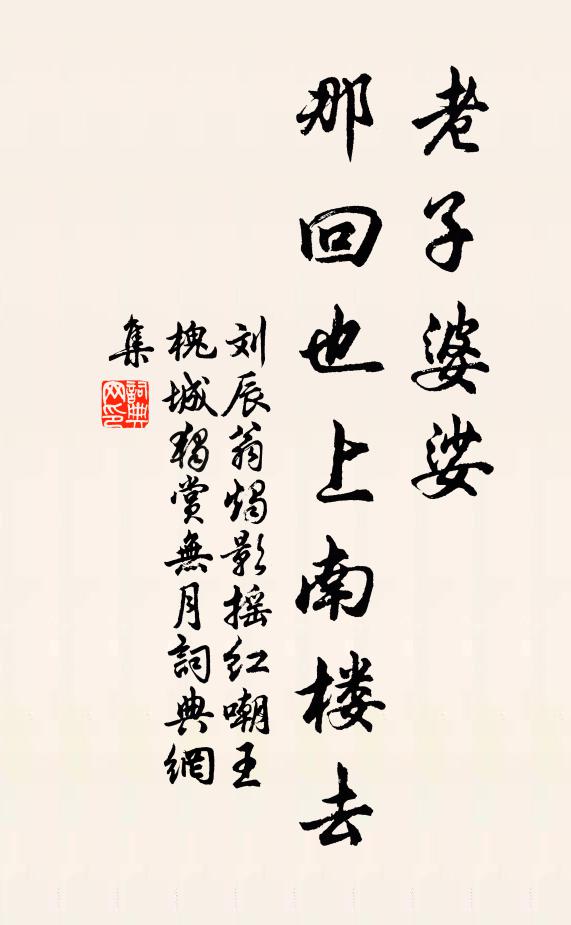 老子婆娑
那回也上南楼去
刘辰翁烛影摇红嘲王
槐城独赏無月詞典網
集
詞典
网印